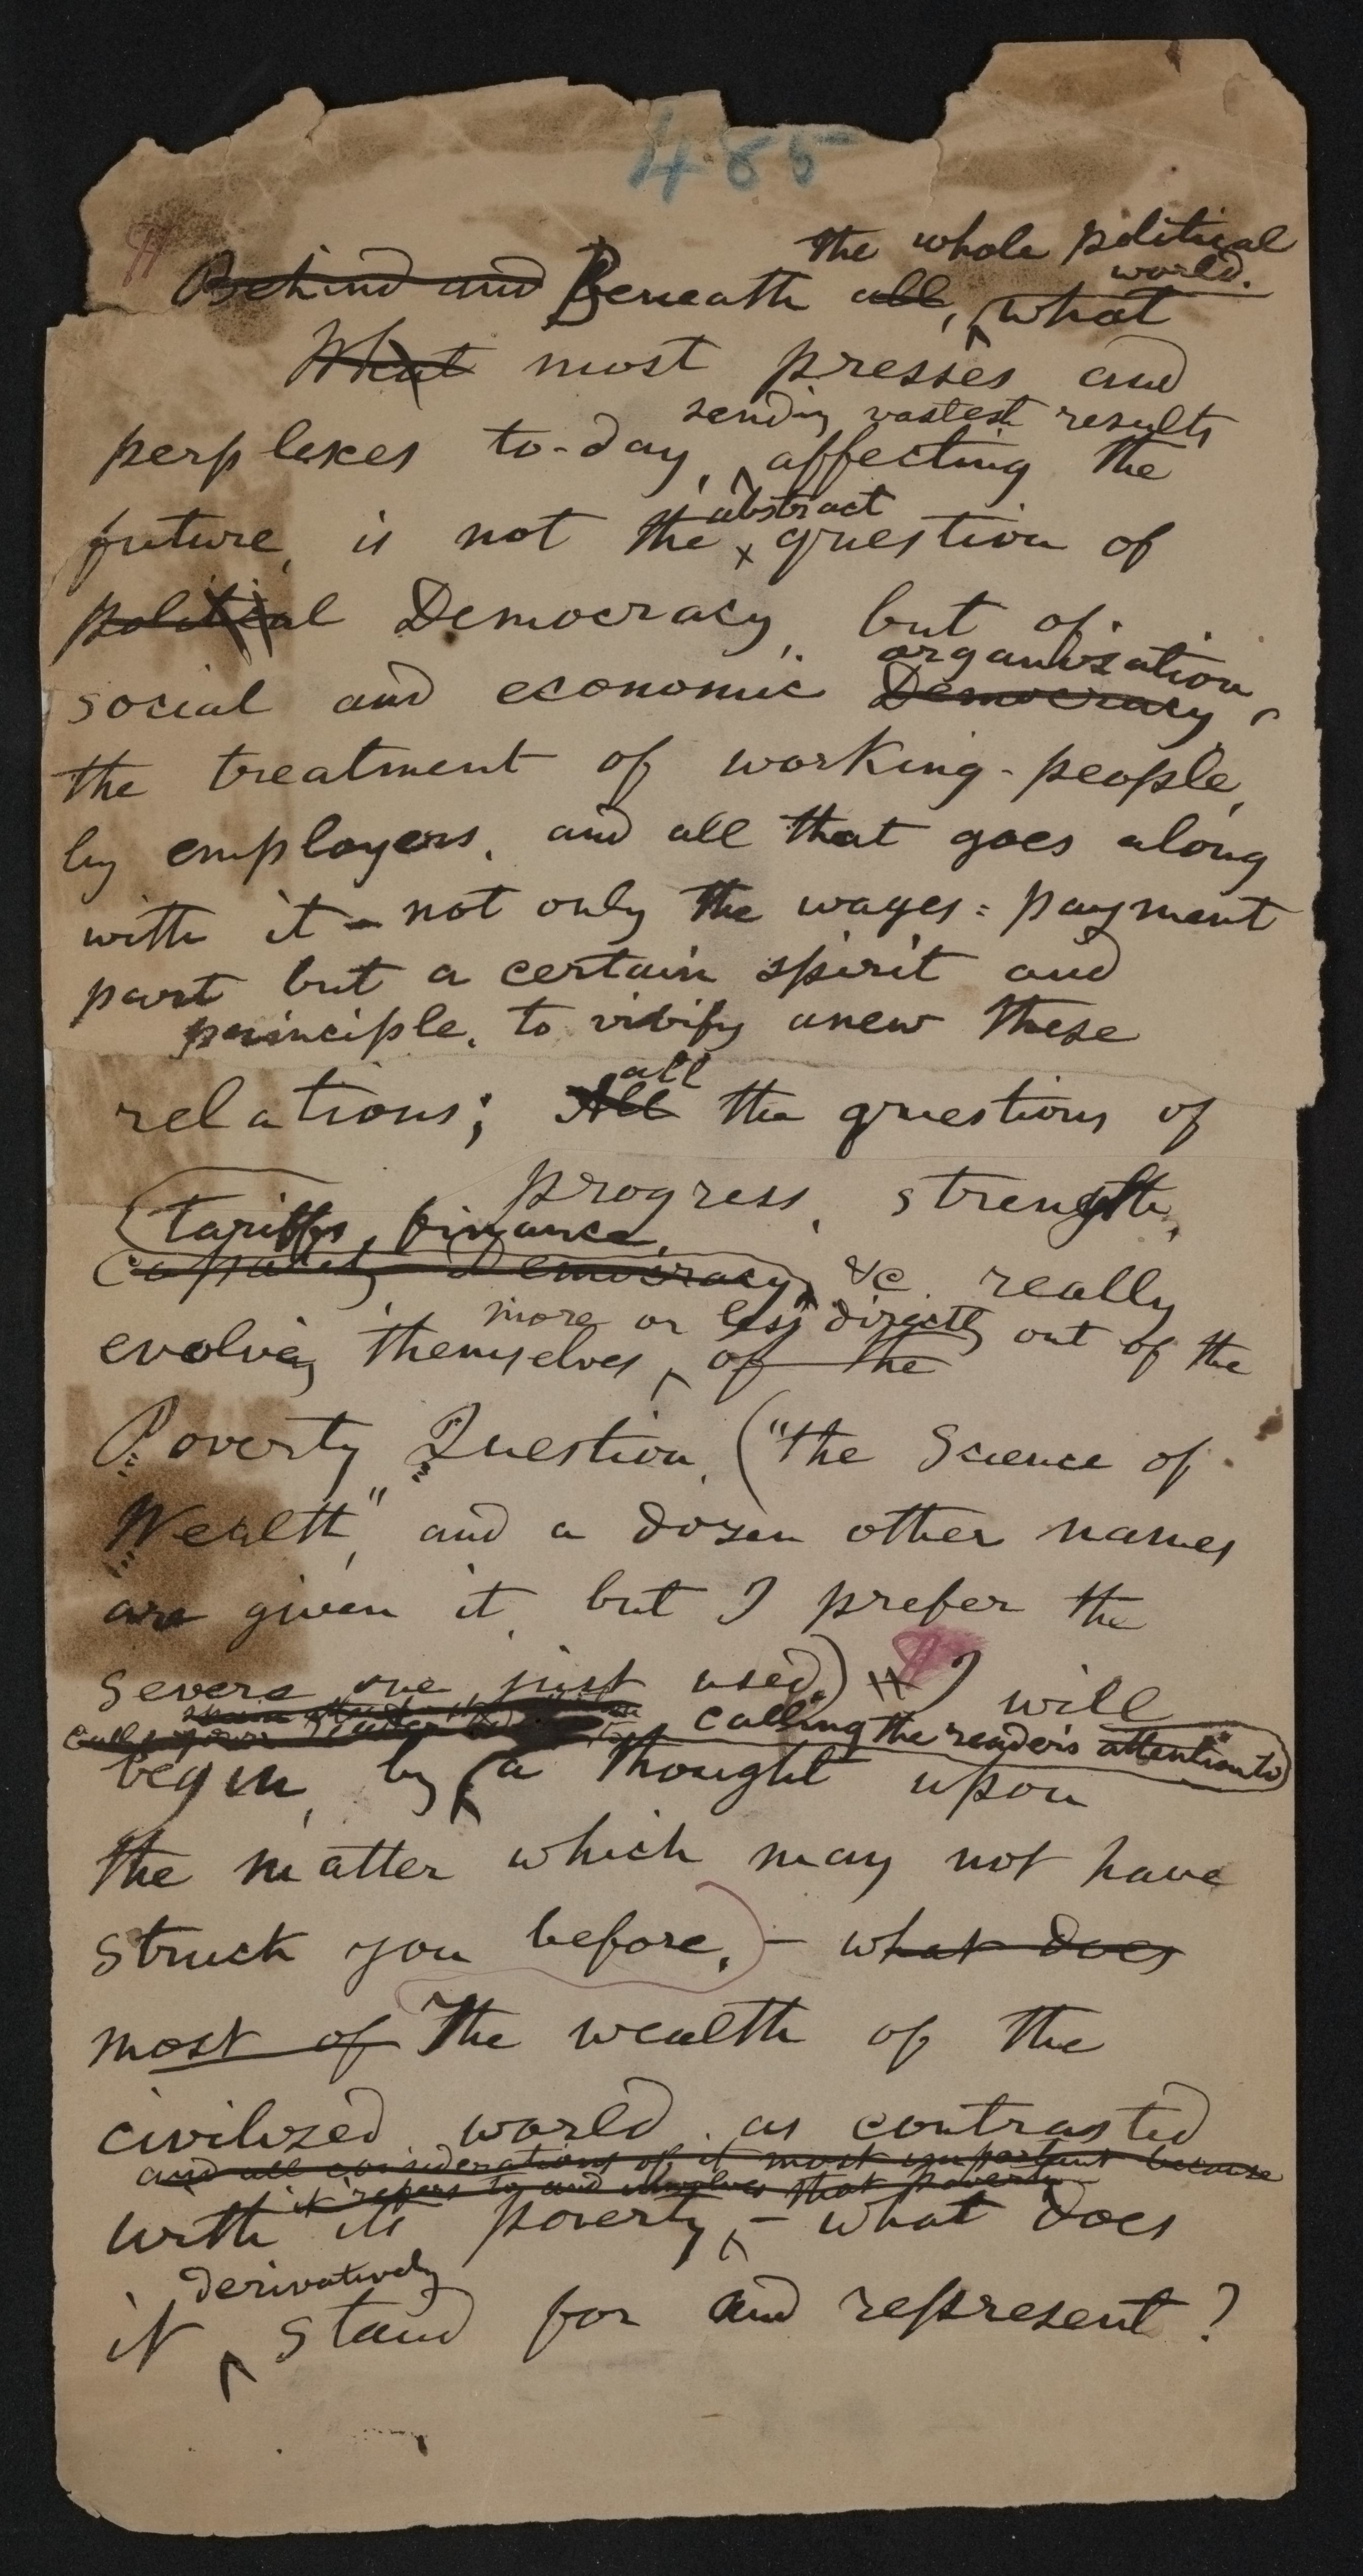 485
the whole political
world.
Behind and Beneath all, what
What most presses and
sending vastest results
perplexes to-day, affecting the
abstract
future, is not the question of
political Democracy, but of
organization,
social and economic Democracy
the treatment of working-people,
by employers, and all that goes along
with it - not only the wages=payment
part but a certain spirit and
principle, to vivify anew these
all
relations; All the questions of
progress, strength,
tariffs, finance,
Capacity Democracy, &c really
more or less directly out of the
evolving themselves, of the
Poverty Question, ("the Science of
Wealth," and a dozen other names
are given it, but I prefer the
severe one just used.) I will
calling the reader's attention to
begin, by a thought upon
the matter which may not have
struck you before. - what does
most of The wealth of the
civilized world, as contrasted
and all considerations of it most important because
it refers to and involves that poverty
with its poverty, - what does
derivatively
it stand for and represent?